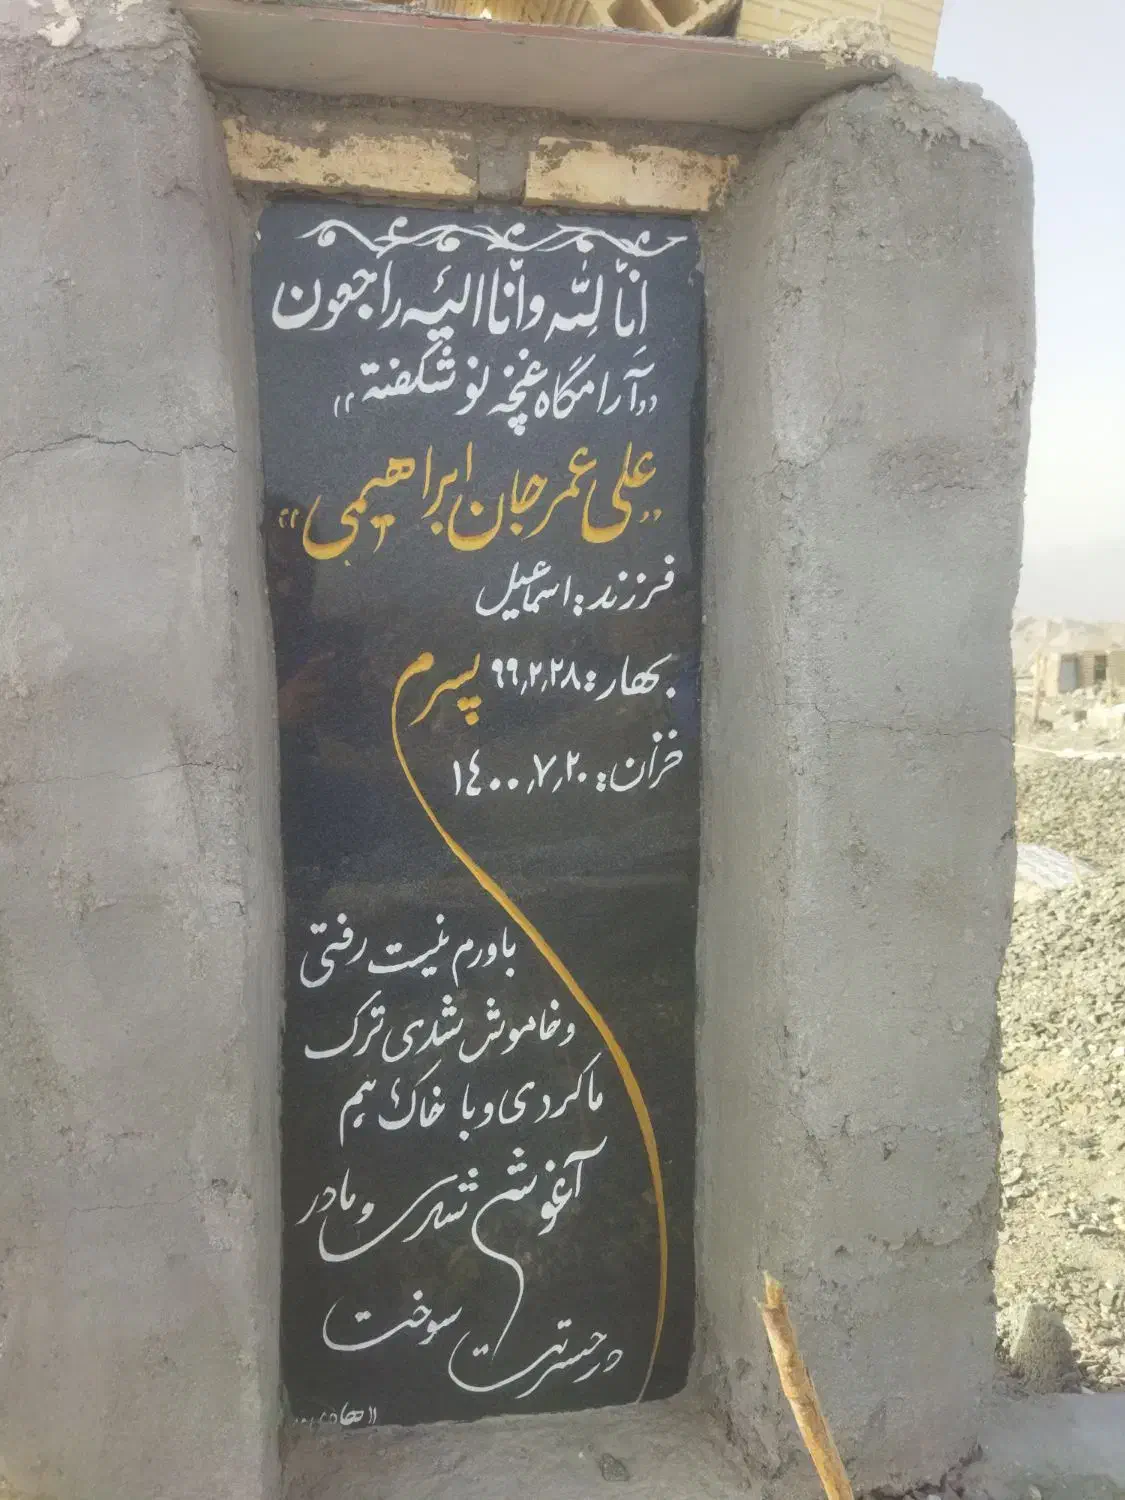 اِنّا لِلّه وانّا الیه راجعون
«آرامگاه غنچه نو شکفته»
«علی عمرجان ابراهیمی»
فرزند: اسماعیل
بهار: ۹۹٫۲٫۲۸
پسرم
خزان: ۱٤۰۰٫۷٫۲۰
باورم نیست رفتی
و خاموش شدی ترک
ما کردی و با خاک هم
آغوش شدی و مادر
در حسرتت سوخت